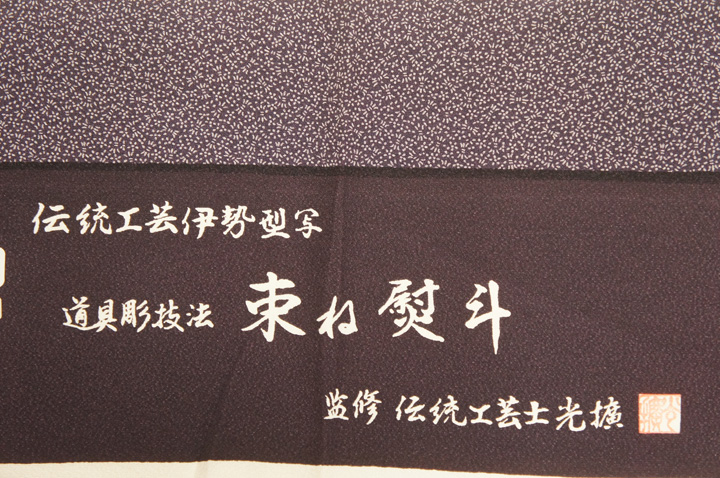 伝统工芸伊勢型写
道具彫技法 束ね熨斗
监修 伝统工芸士光擴